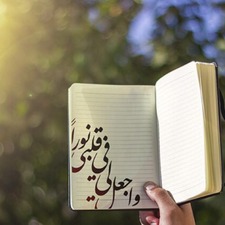 واجعل لي في قلبي نوراً